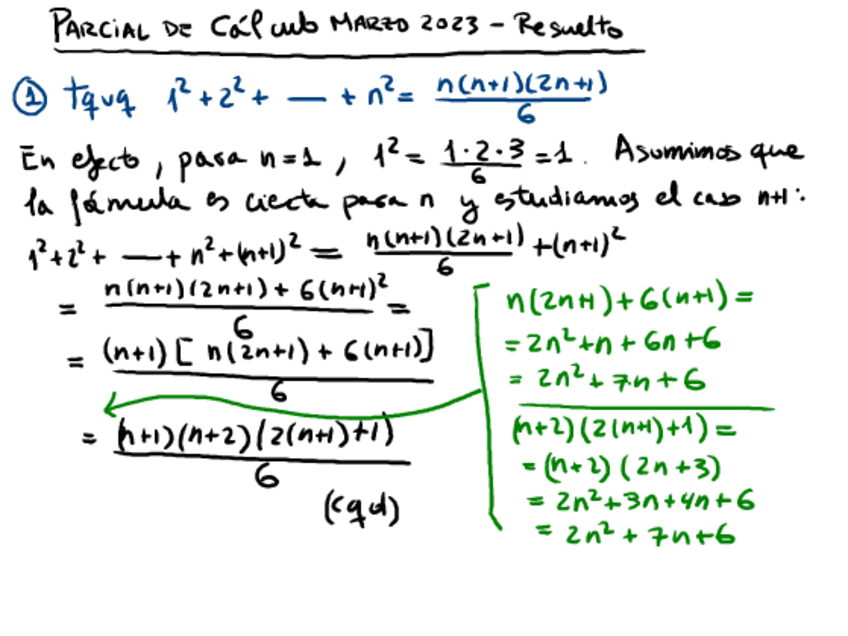 PARCIAL DE Cálculo MARZO 2023 - Resuelto
① tqvq 1²+2²+ — + n² = n(n+1)(2n+1)/6
En efecto, para n=1, 1² = 1·2·3/6 = 1. Asumimos que
la fórmula es cierta para n y estudiamos el caso n+1:
1²+2²+ — + n²+(n+1)² = n(n+1)(2n+1)/6 +(n+1)²
= n(n+1)(2n+1) + 6(n+1)²/6 =
= (n+1)[n(2n+1) + 6(n+1)]/6
= (n+1)(n+2)(2(n+1)+1)/6
(cqd)
n(2n+1)+6(n+1) =
= 2n²+n+6n+6
= 2n²+7n+6
(n+2)(2(n+1)+1) =
= (n+2)(2n+3)
= 2n²+3n+4n+6
= 2n²+7n+6